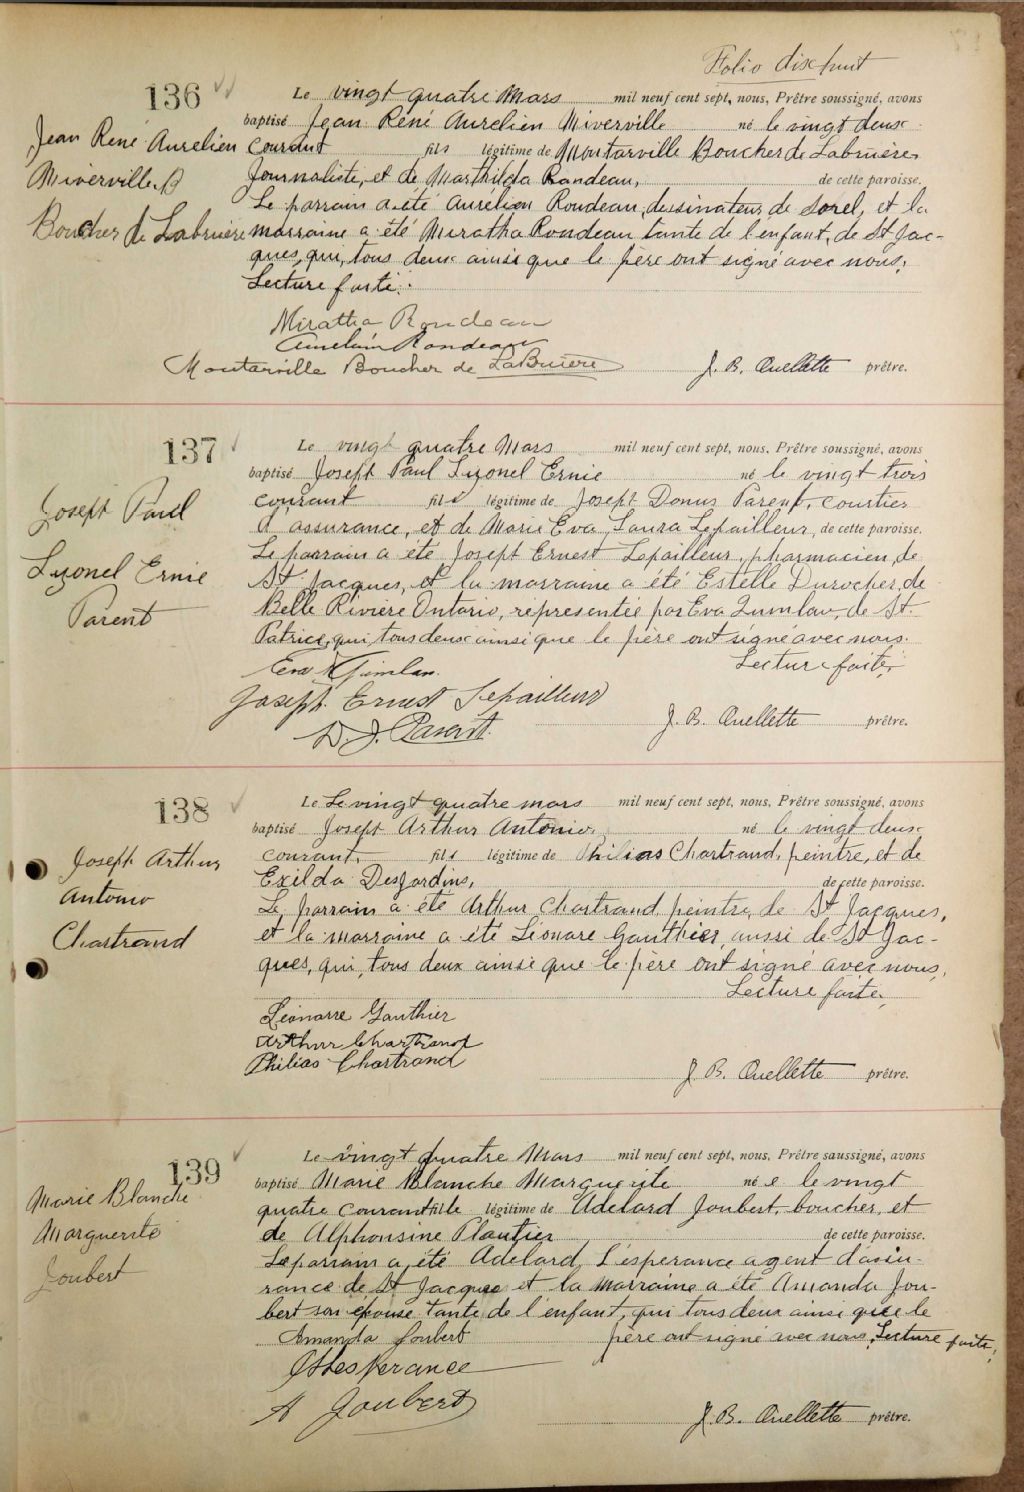 Folio dix huit
136
Jean René Aurelien
Miverville B
Boucher de Labruière
Le vingt quatre Mars mil neuf cent sept, nous, Prêtre soussigné, avons
baptisé Jean René Aurelien Miverville né le vingt deux
courant fils légitime de Montarville Boucher de Labruière
Journaliste, et de Marthilda Rondeau, de cette paroisse.
Le parrain a été Aurelien Rondeau, dessinateur, de Sorel, et la
marraine a été Miratha Rondeau tante de l'enfant, de St Jac-
ques, qui, tous deux ainsi que le père ont signé avec nous.
Lecture faite.
Miratha Rondeau
Aurelien Rondeau
Montarville Boucher de LaBruère
J. B. Ouellette prêtre.
137
Joseph Paul
Lyonel Ernie
Parent
Le vingt quatre Mars mil neuf cent sept, nous, Prêtre soussigné, avons
baptisé Joseph Paul Lyonel Ernie né le vingt trois
courant fils légitime de Joseph Donus Parent, courtier
d'assurance, et de Marie Eva, Laura Lepailleur, de cette paroisse.
Le parrain a été Joseph Ernest Lepailleur, pharmacien, de
St Jacques, et la marraine a été Estelle Durocher, de
Belle Rivière Ontario, représentée par Eva Quinlan, de St.
Patrice, qui, tous deux ainsi que le père ont signé avec nous.
Lecture faite,
Eva Quinlan.
Joseph Ernest Lepailleur
D. J. Parent.
J. B. Ouellette prêtre.
138
Joseph Arthur
Antonio
Chartrand
Le Le vingt quatre mars mil neuf cent sept, nous, Prêtre soussigné, avons
baptisé Joseph Arthur Antonio, né le vingt deux
courant, fils légitime de Philias Chartrand, peintre, et de
Exilda DesJardins, de cette paroisse.
Le parrain a été Arthur Chartrand peintre, de St Jacques,
et la marraine a été Léonare Gauthier, aussi de St Jac-
ques, qui, tous deux ainsi que le père ont signé avec nous,
Lecture faite,
Léonarre Gauthier
Arthur Chartrand
Philias Chartrand
J. B. Ouellette prêtre.
139
Marie Blanche
Marguerite
Joubert
Le vingt quatre Mars mil neuf cent sept, nous, Prêtre saussigné, avons
baptisé Marie Blanche Marguerite née le vingt
quatre courant fille légitime de Adelard Joubert, boucher, et
de Alphonsine Plantier de cette paroisse.
Le parrain a été Adelard L'esperance agent d'assu-
rance de St Jacques et la marraine a été Amanda Jou-
bert son épouse tante de l'enfant, qui tous deux ainsi que le
père ont signé avec nous, Lecture faite,
Amanda Joubert
A Joubert
J. B. Ouellette prêtre.